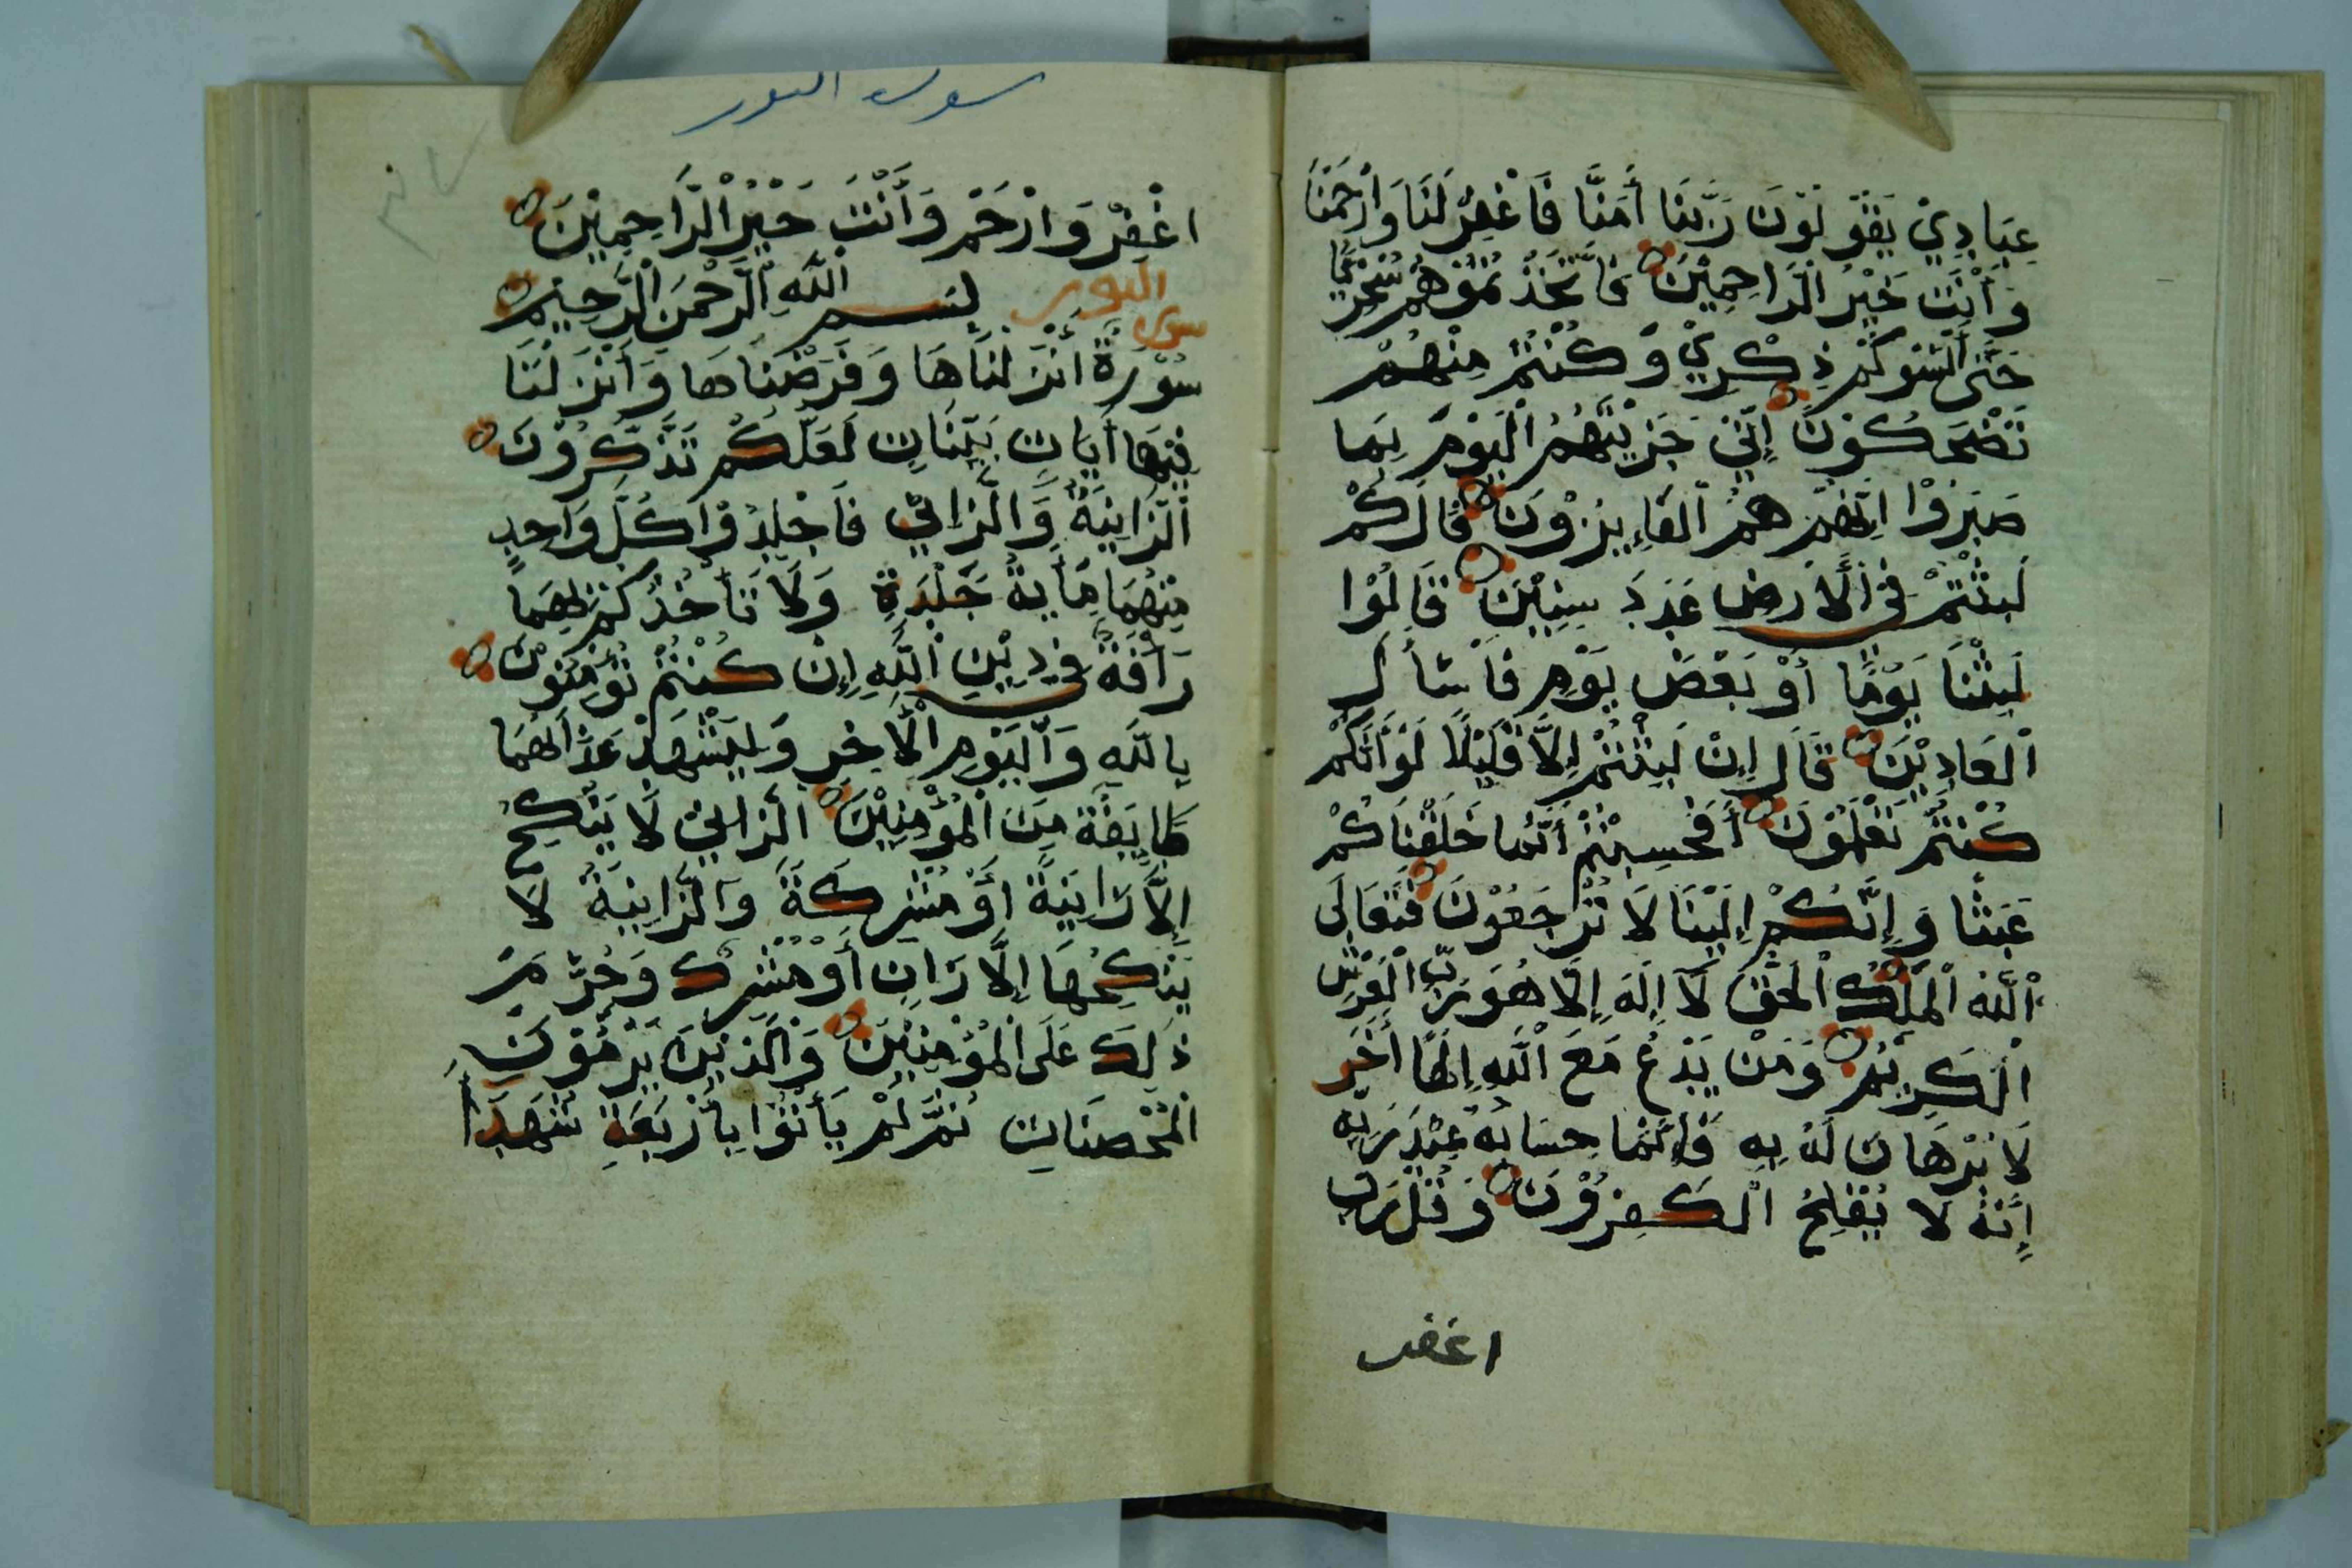 عِبَادِيْ يَقُوْلُوْنَ رَبَّنَا أَمَنَّا فَاغْفِرْ لَنَا وَارْحَمْنَا
وَأَنْتَ خَيْرُ الرَّاحِمِيْنَ فَاتَّخَذْتُمُوْهُمْ سُخْرِيًّا
حَتَّى أَنْسَوْكُمْ ذِكْرِيْ وَكُنْتُمْ مِنْهُمْ
تَضْحَكُوْنَ إِنِّيْ جَزَيْتُهُمُ الْيَوْمَ بِمَا
صَبَرُوْا إِنَّهُمْ هُمُ الْفَايِزُوْنَ قَالَ كُمْ
لَبِثْتُمْ فِي الْأَرْضِ عَدَدَ سِنِيْنَ قَالُوْا
لَبِثْنَا يَوْمًا أَوْ بَعْضَ يَوْمٍ فَاسْأَلِ
الْعَادِيْنَ قَالَ إِنْ لَبِثْتُمْ إِلَّا قَلِيْلًا لَوْ أَنَّكُمْ
كُنْتُمْ تَعْلَمُوْنَ أَفَحَسِبْتُمْ أَنَّمَا خَلَقْنَاكُمْ
عَبَثًا وَإِنَّكُمْ إِلَيْنَا لَا تُرْجَعُوْنَ فَتَعَالَى
اللّٰهُ الْمَلِكُ الْحَقُّ لَا إِلَهَ إِلَّا هُوَ رَبُّ الْعَرْشِ
الْكَرِيْمِ وَمَنْ يَدْعُ مَعَ اللّٰهِ إِلَهًا أَخَرَ
لَا بُرْهَانَ لَهُ بِهِ فَإِنَّمَا حِسَابُهُ عِنْدَ رَبِّهِ
إِنَّهُ لَا يُفْلِحُ الْكَفِرُوْنَ وَقُلْ رَبِّ
اغفر
سورة النور
اغْفِرْ وَارْحَمْ وَأَنْتَ خَيْرُ الرَّاحِمِيْنَ
سورة النور بسم اللّٰهِ الرَّحْمَنِ الرَّحِيْمِ
سُوْرَةٌ أَنْزَلْنَاهَا وَفَرَضْنَاهَا وَأَنْزَلْنَا
فِيْهَا أَيَاتٍ بَيِّنَاتٍ لَعَلَّكُمْ تَذَّكَّرُوْنَ
الزَّانِيَةُ وَالزَّانِيْ فَاجْلِدُوْا كُلَّ وَاحِدٍ
مِنْهُمَا مِأْيةَ جَلْدَةٍ وَلَا تَأْخُذْكُمْ بِهِمَا
رَأْفَةٌ فِيْ دِيْنِ اللّٰهِ إِنْ كُنْتُمْ تُؤْمِنُوْنَ
بِاللّٰهِ وَالْيَوْمِ الْأَخِرِ وَلْيَشْهَدْ عَذَابَهُمَا
طَايِفَةٌ مِنَ الْمُؤْمِنِيْنَ الزَّانِيْ لَا يَنْكِحُ
إِلَّا زَانِيَةً أَوْ مُشْرِكَةً وَالزَّانِيَةُ لَا
يَنْكِحُهَا إِلَّا زَانٍ أَوْ مُشْرِكٌ وَحُرِّمَ
ذَلِكَ عَلَى الْمُؤْمِنِيْنَ وَالَّذِيْنَ يَرْمُوْنَ
الْمُحْصَنَاتِ ثُمَّ لَمْ يَأْتُوْا بِأَرْبَعَةِ شُهَدَاءَ